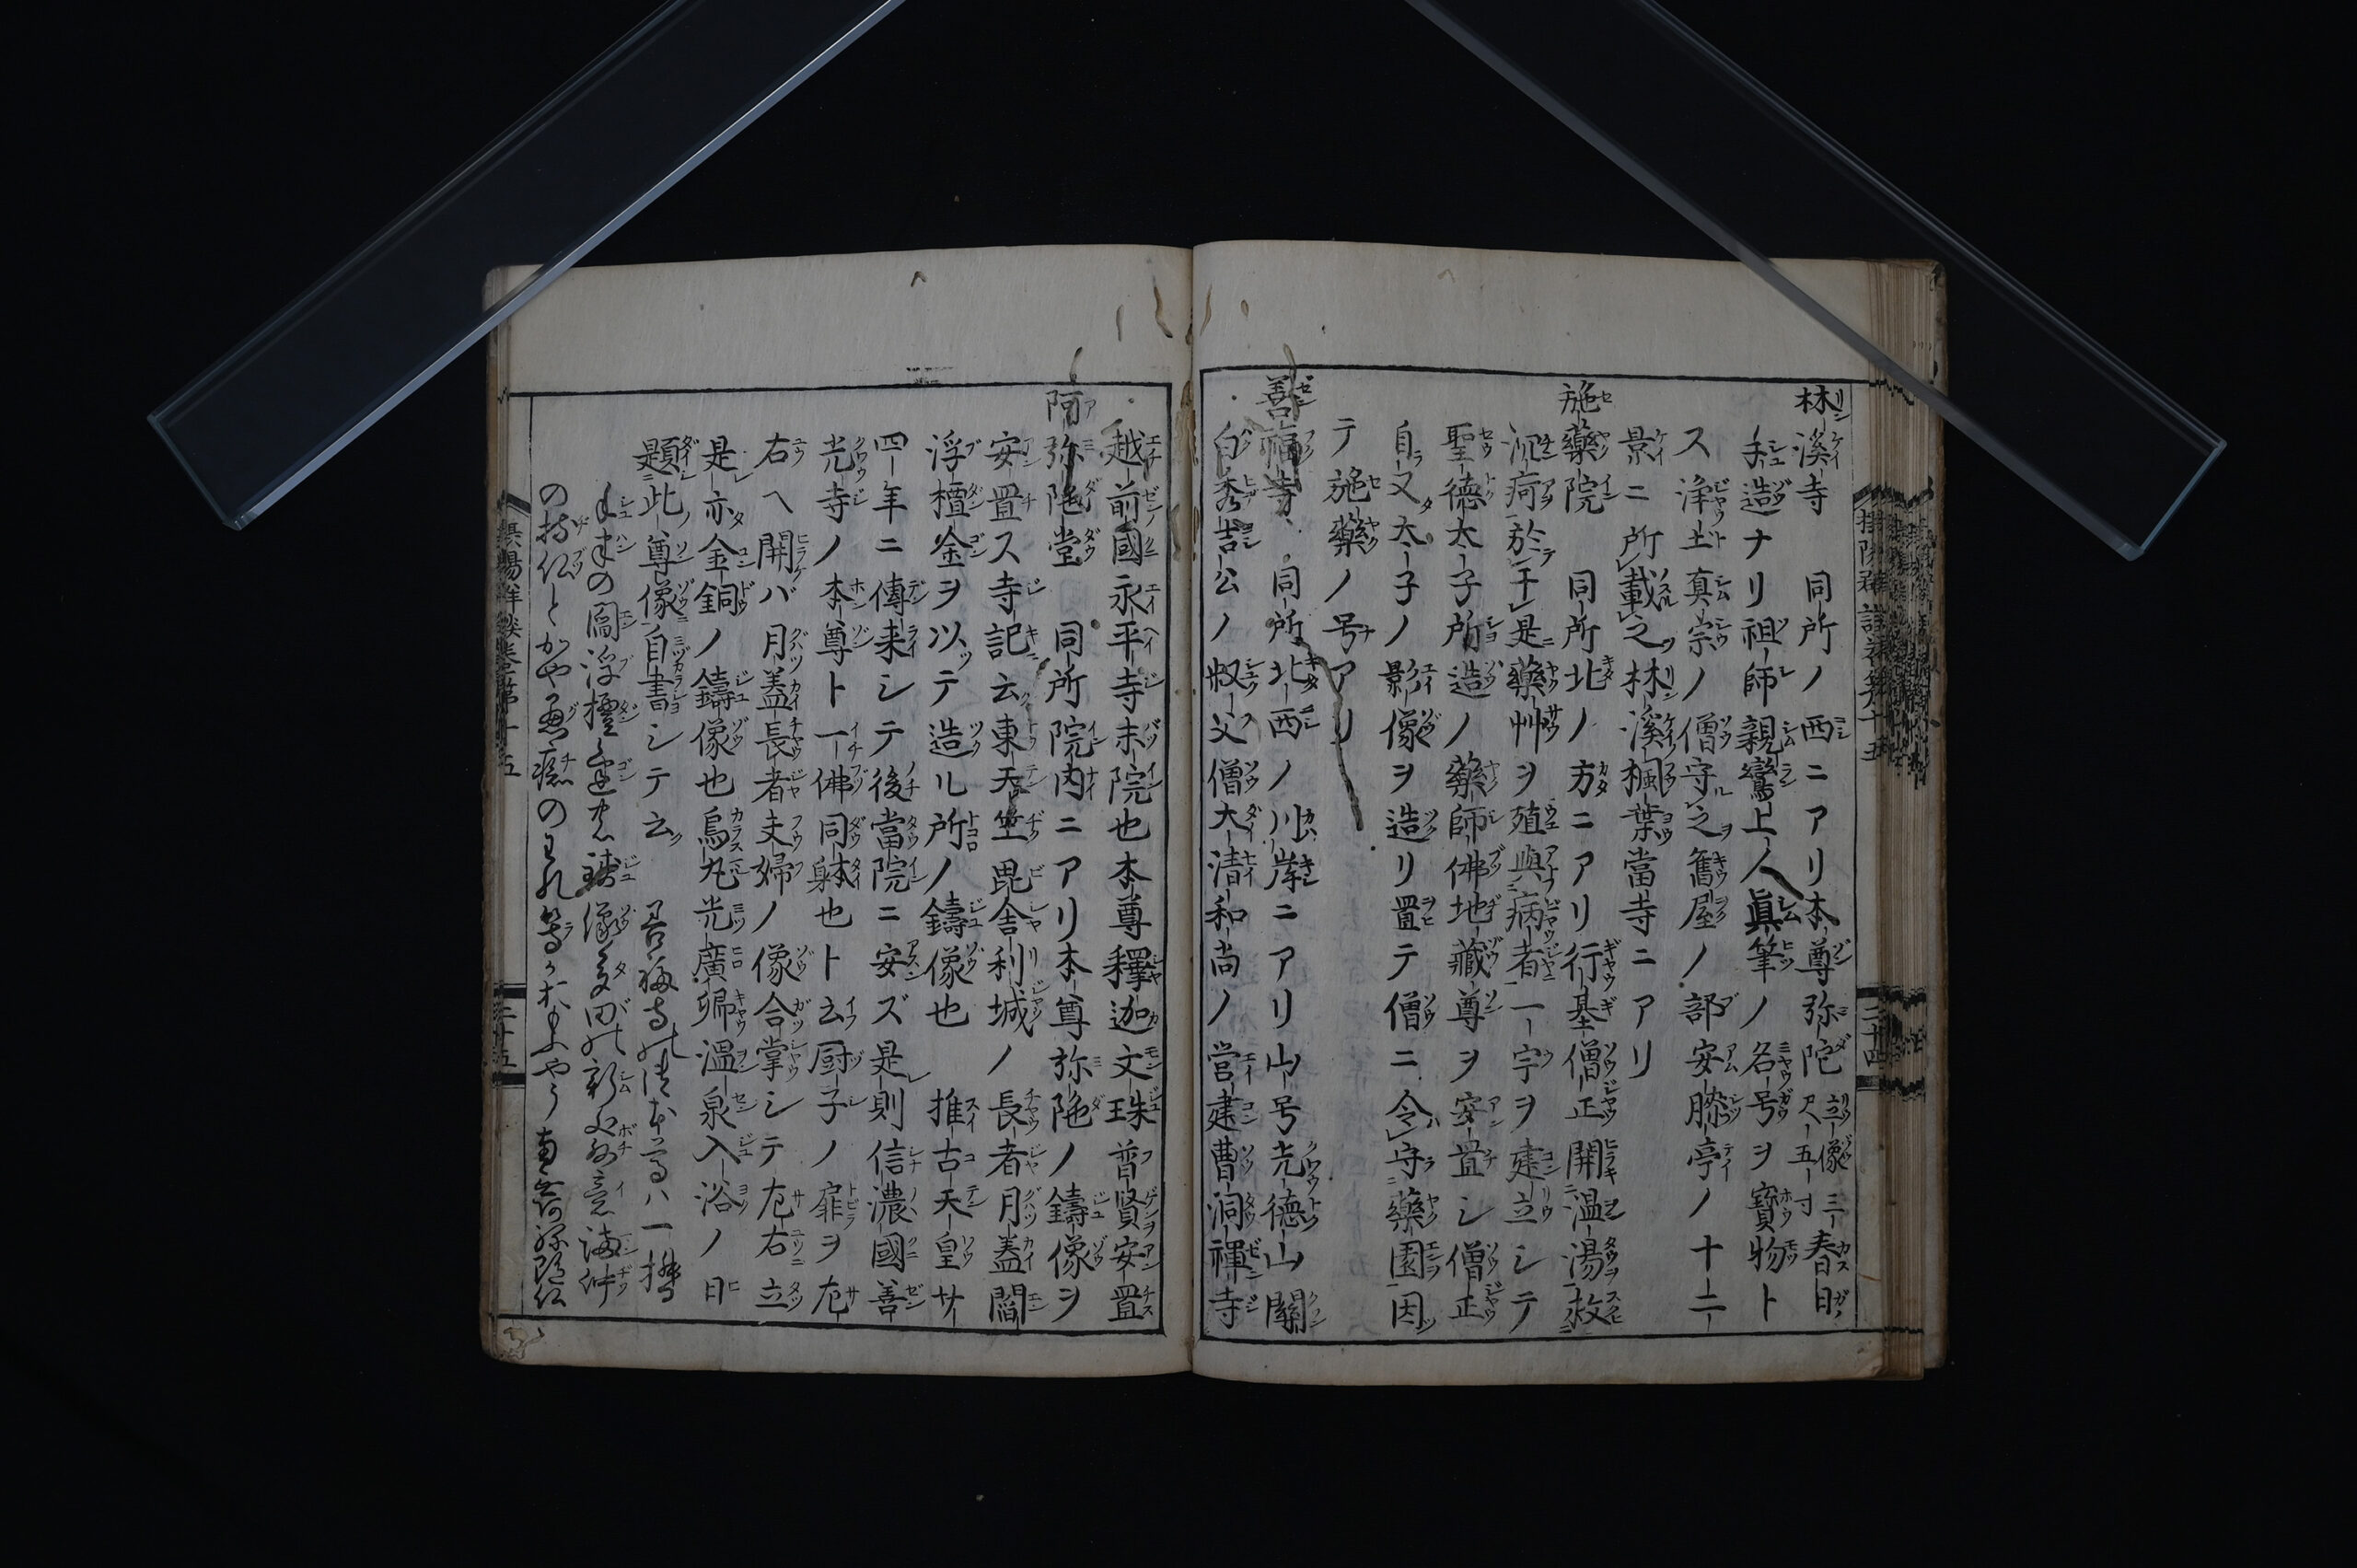 林溪寺 同所ノ西ニアリ本尊弥陀立像三尺五寸春日
手造ナリ祖師親鸞上人眞筆ノ名号ヲ寶物ト
ス浄土真宗ノ僧守之舊屋ノ部安膝亭ノ十二
景ニ所載之林溪楓葉當寺ニアリ
施藥院 同所北ノ方ニアリ行基僧正開温湯救
沉痾於干是藥艸ヲ殖與病者一宇ヲ建立シテ
聖徳太子所造ノ藥師佛地藏尊ヲ安置シ僧正
自又太子ノ影像ヲ造リ置テ僧ニ令守藥園因
テ施藥ノ号アリ
善福寺 同所北西ノ川岸ニアリ山号光徳山關
白秀吉公ノ叔父僧大清和尚ノ営建曹洞禪寺
越前國永平寺末院也本尊釋迦文珠普賢安置
阿弥陁堂 同所院内ニアリ本尊弥陁ノ鑄像ヲ
安置ス寺記云東天竺毘舎利城ノ長者月蓋閻
浮檀金ヲ以テ造ル所ノ鑄像也 推古天皇廿
四年ニ傳来シテ後當院ニ安ズ是則信濃國善
光寺ノ本尊ト一佛同躰也ト云厨子ノ扉ヲ左
右ヘ開バ月蓋長者夫婦ノ像合掌シテ左右立
是亦金銅ノ鑄像也烏丸光廣卿温泉入浴ノ日
題此尊像自書シテ云 善福寺の本尊ハ一攈
手半の閻浮檀金鑄像多田の新発意満仲
の持仏とかや愚癡のわれ等南無阿弥陀仏